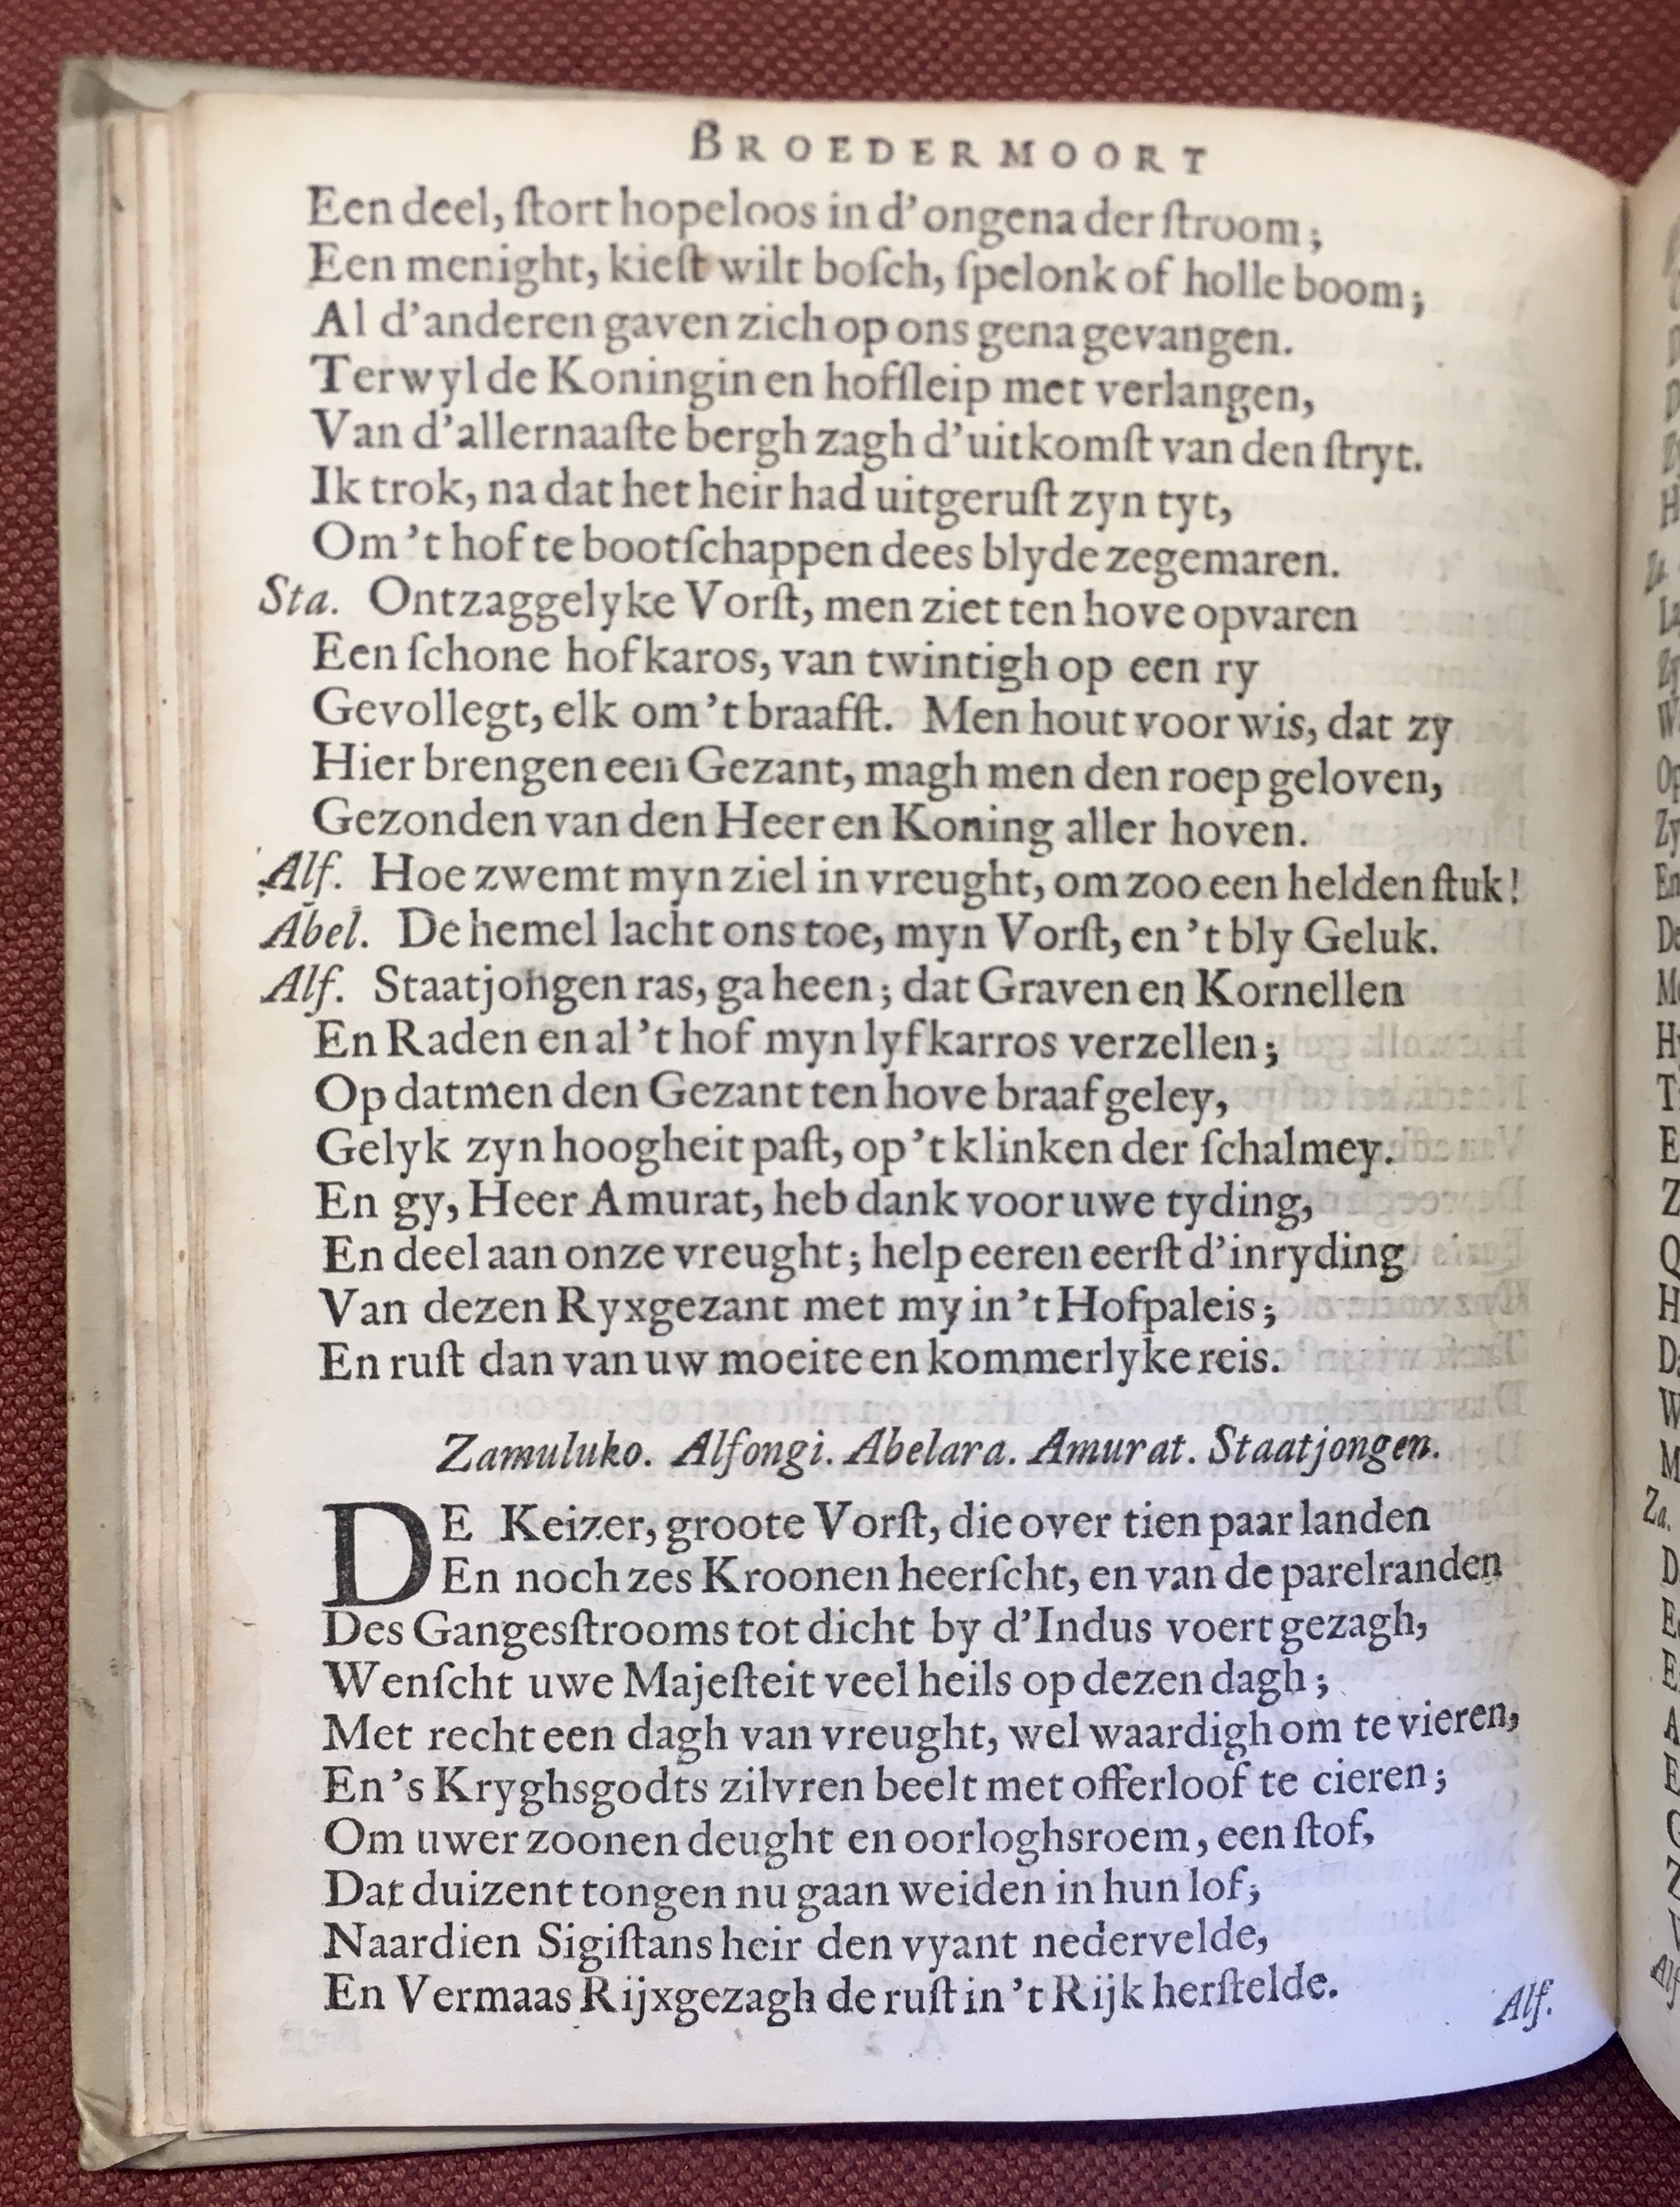 BROEDERMOORT
Een deel, ſtort hopeloos in d'ongenader ſtroom;
Een menight, kieſt wilt boſch, ſpelonk of holle boom;
Al d'anderen gaven zich op ons gena gevangen.
Terwyl de Koningin en hofſleip met verlangen,
Van d'allernaaſte bergh zagh d'uitkomſt van den ſtryt.
Ik trok, na dat het heir had uitgeruſt zyn tyt,
Om 't hof te bootſchappen dees blyde zegemaren.
Sta. Ontzaggelyke Vorſt, men ziet ten hove opvaren
Een ſchone hofkaros, van twintigh op een ry
Gevollegt, elk om 't braafſt. Men hout voor wis, dat zy
Hier brengen een Gezant, magh men den roep geloven,
Gezonden van den Heer en Koning aller hoven.
Alf. Hoe zwemt myn ziel in vreught, om zoo een helden ſtuk!
Abel. De hemel lacht ons toe, myn Vorſt, en 't bly Geluk.
Alf. Staatjongen ras, ga heen; dat Graven en Kornellen
En Raden en al 't hof myn lyfkarros verzellen;
Op datmen den Gezant ten hove braaf geley,
Gelyk zyn hoogheit paſt, op 't klinken der ſchalmey.
En gy, Heer Amurat, heb dank voor uwe tyding,
En deel aan onze vreught; help eeren eerſt d'inryding
Van dezen Ryxgezant met my in 't Hofpaleis;
En ruſt dan van uw moeite en kommerlyke reis.
Zamuluko. Alfongi. Abelara. Amurat. Staatjongen.
DE Keizer, groote Vorſt, die over tien paar landen
En noch zes Kroonen heerſcht, en van de parelranden
Des Gangesſtrooms tot dicht by d'Indus voert gezagh,
Wenſcht uwe Majeſteit veel heils op dezen dagh;
Met recht een dagh van vreught, wel waardigh om te vieren,
En 's Kryghsgodts zilvren beelt met offerloof te cieren;
Om uwer zoonen deught en oorloghsroem, een ſtof,
Dat duizent tongen nu gaan weiden in hun lof;
Naardien Sigiſtans heir den vyant nedervelde,
En Vermaas Rijxgezagh de ruſt in 't Rijk herſtelde.
Alf.